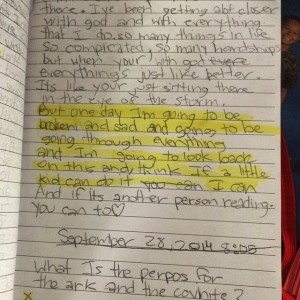 there. I've been getting alot closer
with god and with everything
that I do. so many things in life
so complicated, so many hardships
but when your with god
everything's just like better.
Its like your just sitting there
in the eye of the storm.
But one day Im going to be
broken and sad and going to be
going through everything
and Im going to look back
on this and think If a little
kid can do it I can
And if its another person reading.
you can to♡
September 28, 2014 8:05
What Is the perpos for
the ark and the covnite?